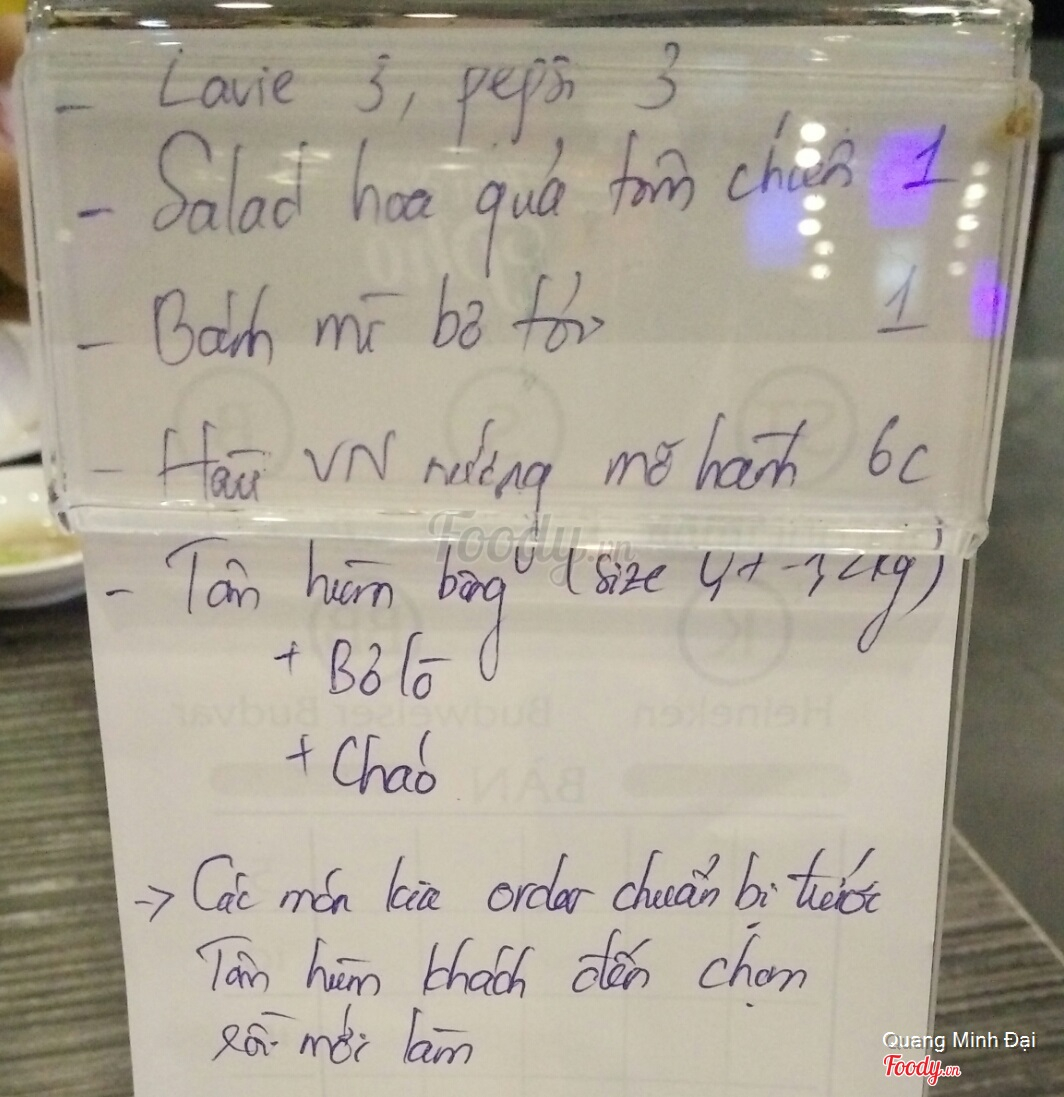 - Lavie 3, pepsi 3
- Salad hoa quả tôm chiên 1
- Bánh mì bơ tỏi 1
- Hàu VN nướng mỡ hành 6c
- Tôm hùm bông (size
+ Bỏ lò
+ Cháo
→ Các món kia order chuẩn bị trước
Tôm hùm khách đến chọn
rồi mới làm
Foody.vn
Heineken
Budweiser Budvar
BÀN
Quang Minh Đại
Foody.vn